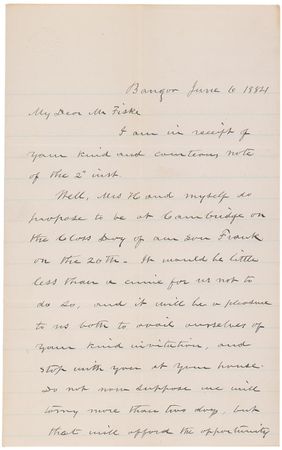 Bangor June 6 1884
My Dear Mr Fiske
I am in receipt of
your kind and courteous note
of the 2d inst.
Well, Mrs H and myself do
propose to be at Cambridge on
the Class Day of our son Frank
on the 20th. It would be little
less than a crime for us not to
do so, and it will be a pleasure
to us both to avail ourselves of
your kind invitation, and
stop with you at your house.
Do not now suppose we will
tarry more than two days, but
that will afford the opportunity